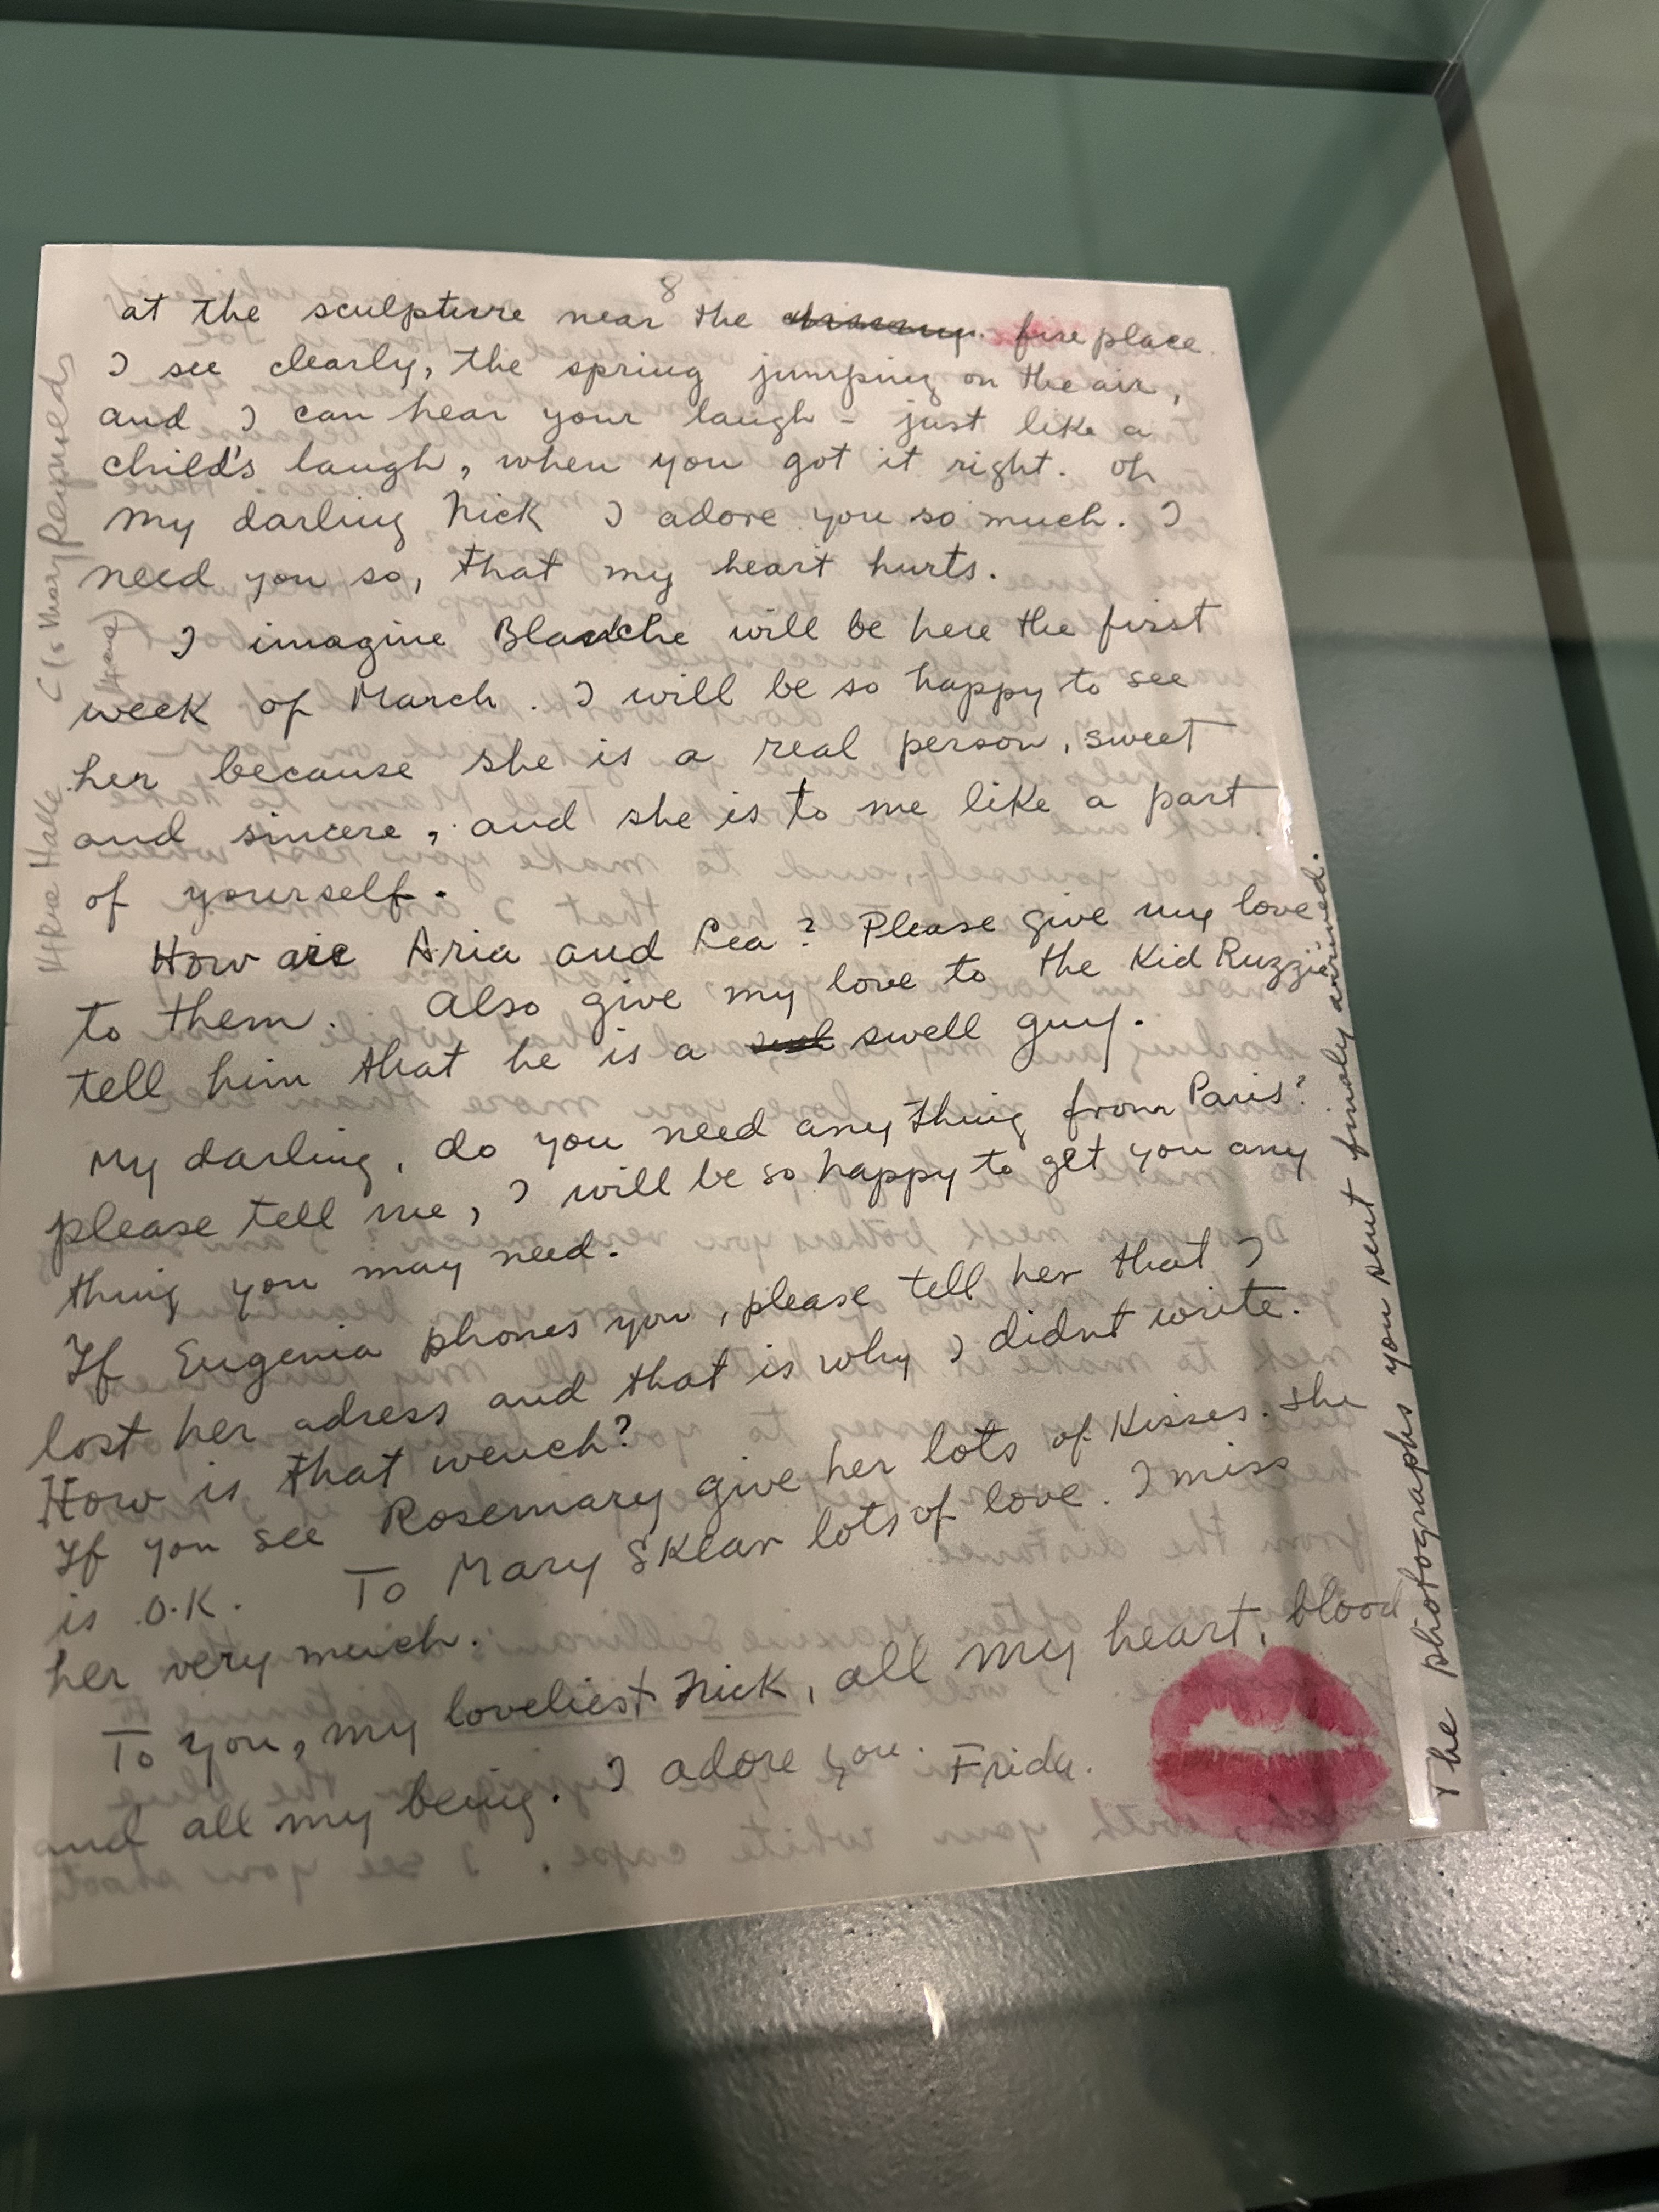 8
at the sculpture near the fire place.
I see clearly, the spring jumping on the air,
and I can hear your laugh - just like a
child's laugh, when you got it right. Oh
my darling Nick I adore you so much. I
need you so, that my heart hurts.
I imagine Blanche will be here the first
week of March. I will be so happy to see
her because she is a real person, sweet
and sincere, and she is to me like a part
of yourself.
How are Aria and Lea? Please give my love
to them. Also give my love to the Kid Ruzzie
tell him that he is a swell guy.
My darling, do you need any thing from Paris?
please tell me, I will be so happy to get you any
thing you may need.
If Eugenia phones you, please tell her that I
lost her adress and that is why I didnt write.
How is that wench?
If you see Rosemary give her lots of Kisses. She
is O.K. To Mary Sklar lots of love. I miss
her very much.
To you, my loveliest Nick, all my heart, blood
and all my being. I adore you. Frida.
The photographs you sent finaly arrived.